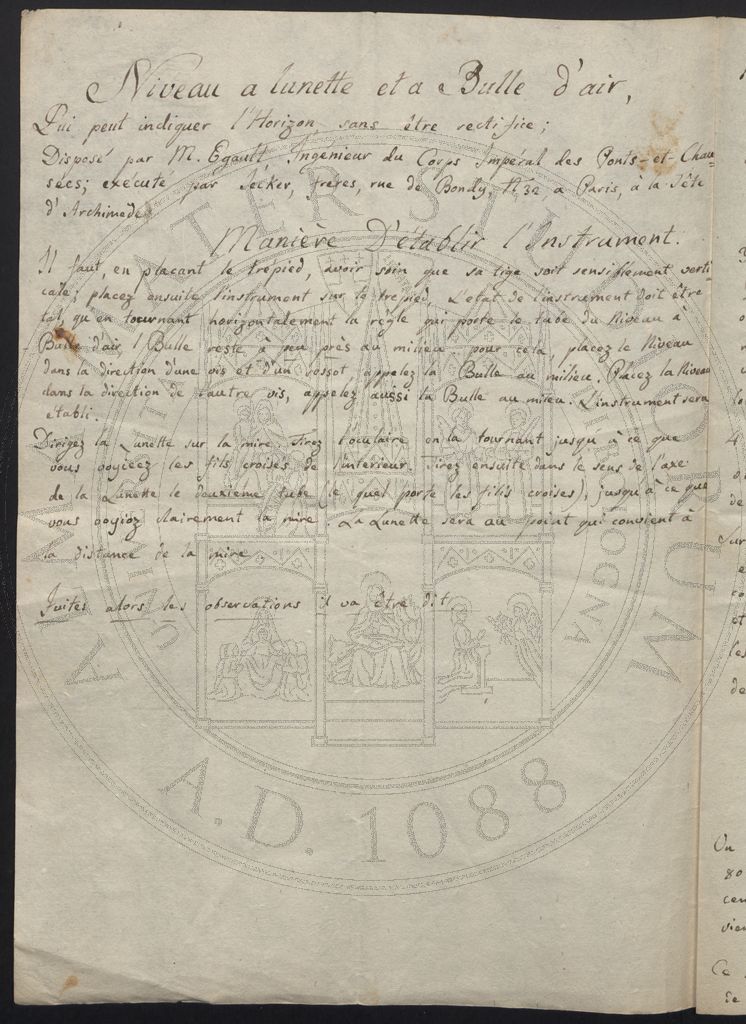 Niveau a lunette et a Bulle d'air,
Qui peut indiquer l'Horizon, sans être rectifiée;
Disposé par M. Egault Ingénieur du Corps Impérial des Ponts-et-Chau=
sées; exécuté par Jecker, frères, rue de Bondy, N. 32 a Paris, à la Tête
d'Archimede.
Manière D'établir l'Instrument.
Il faut, en placant le trépied, avoir soin que sa tige soit sensiblement verti
cale; placez ensuite l'instrument sur le trepied. L'etat de l'instrument doit être
tel, qu'en tournant horizontalement la règle qui porte le tube du Niveau à
Bulle d'air, l Bulle reste à peu près au milieu pour cela, placez le Niveau
dans la direction d'une vis et d'un ressot, appelez la Bulle au milieu. Placez la Niveau
dans la direction de l'autre vis, appelez aussi la Bulle au milieu. L'instrument sera
etabli.
Dirigez la Lunette sur la mire. Tirez l'oculaire en la tournant jusqu à ce que
vous voyieez les fils croisés de l'interieur. Tirez ensuite dans le sens de l'axe
de la Lunette le deuxième tube (le quel porte les fils croises), jusqu'à ce que
vous voyioz clairement la mire. La Lunette sera au point qui convient à
la distance de la mire
alors les observations il va être dit
ALMA MATER STUDIORUM
A.D. 1088